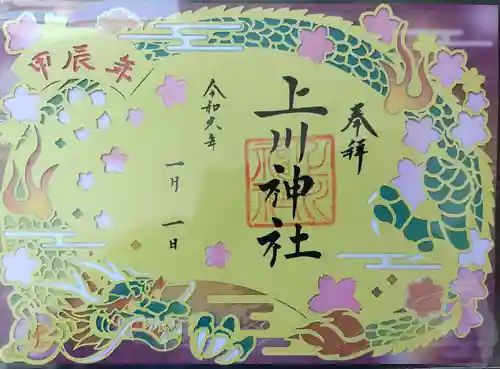 奉拝
上川神社
令和六年
一月一日
甲辰年